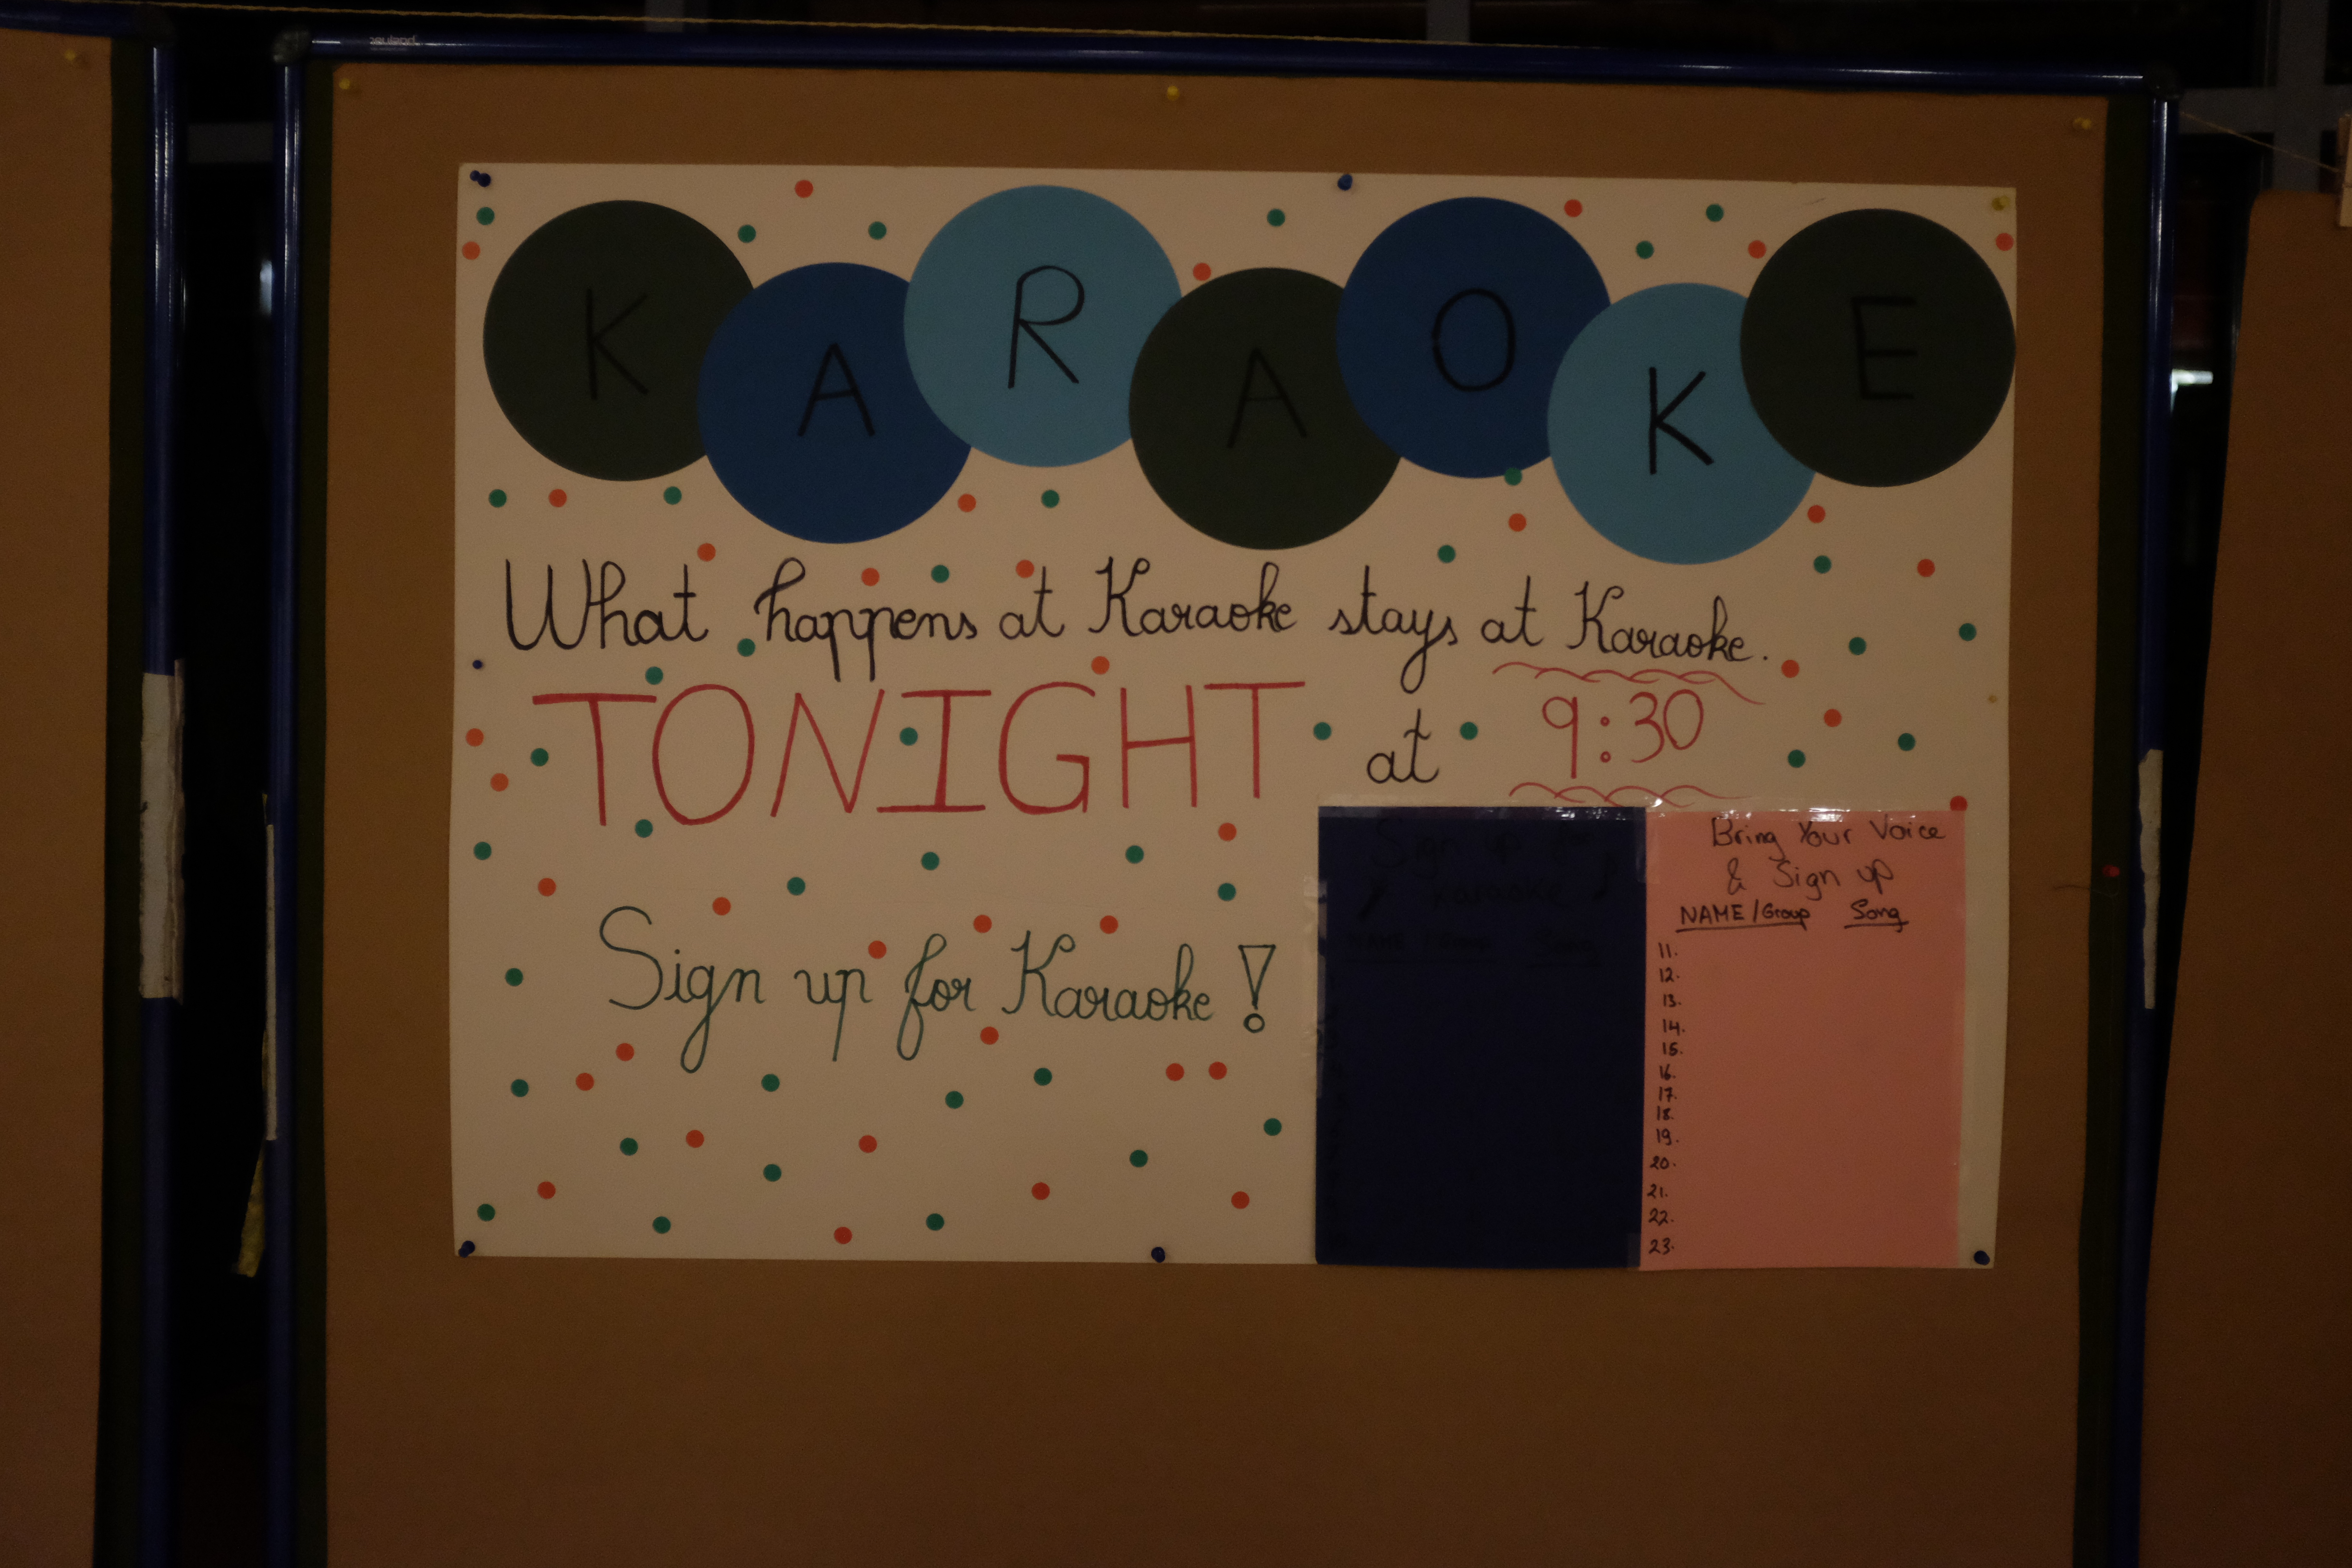 KARAOKE
What happens at Karaoke stays at Karaoke.
TONIGHT at 9:30
Sign up for Karaoke!
Sign up for
Karaoke
NAME / Group Song
Bring Your Voice
& Sign up
NAME / Group Song
11.
12.
13.
14.
15.
16.
17.
18.
19.
20.
21.
22.
23.